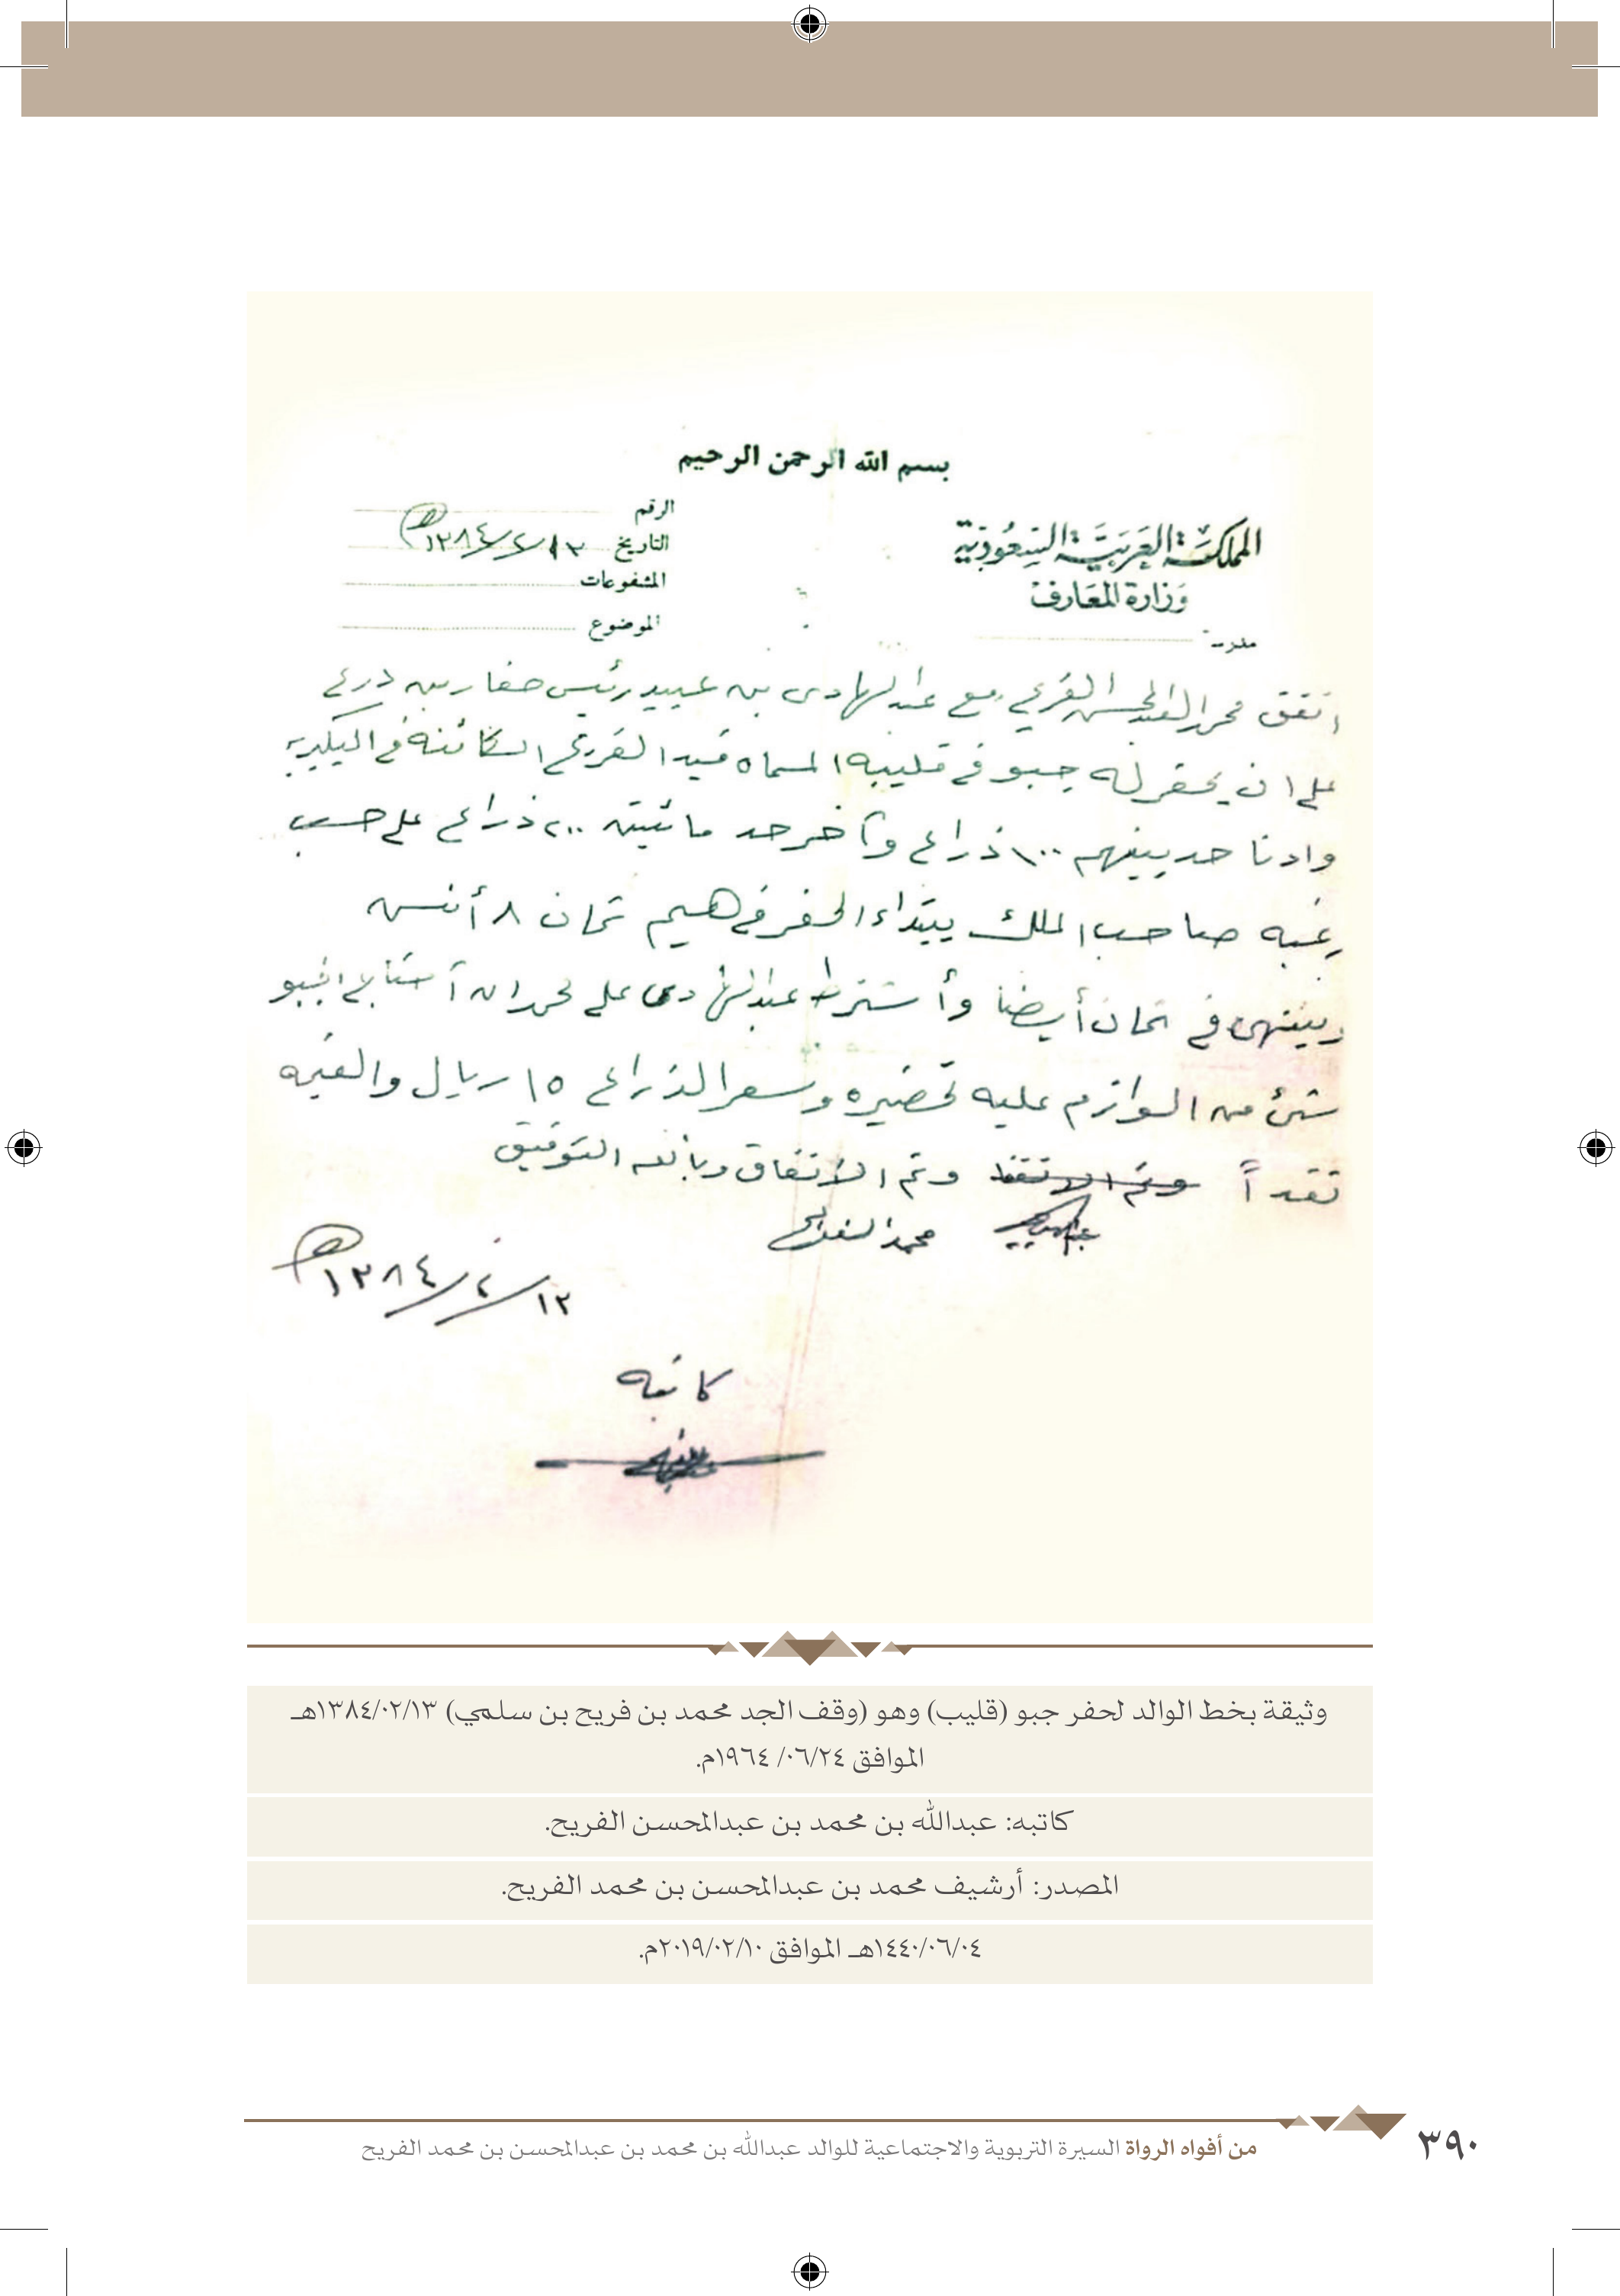 بسم الله الرحمن الرحيم
المملكة العربية السعودية
وزارة المعارف
مدرسة
الرقم
التاريخ ١٣/٢/١٣٨٤هـ
المشفوعات
الموضوع
اتفق محمد العبدالمحسن الفريحي مع عبدالهادي بن عبيد رئيس حفارين درعى
على ان يحفر له جبو في قليبه المسماه فيد الفريحي الكائنة في البكيريه
وادنا حد بينهم ١٠٠ ذراع وآخر حد مائتين ٢٠٠ ذراع على حسب
رغبه صاحب الملك يبتداء الحفر في هيم ثمان ٨ أنس
وينتهي في ثمان أيضا وأشترط عبدالهادي على محمد ان آحتاج الجبو
شئ من الوازم عليه تحضيره وسعر الذراع ١٥ ريال والقيمه
نقداً وتم الاتفاق وبالله التوفيق
محمد الفريحي
١٣/٢/١٣٨٤هـ
كاتبه
وثيقة بخط الوالد لحفر جبو (قليب) وهو (وقف الجد محمد بن فريح بن سلمي) ١٣٨٤/٠٢/١٣هـ
الموافق ٠٦/٢٤/ ١٩٦٤م.
كاتبه: عبدالله بن محمد بن عبدالمحسن الفريح.
المصدر: أرشيف محمد بن عبدالمحسن بن محمد الفريح.
١٤٤٠/٠٦/٠٤هـ الموافق ٢٠١٩/٠٢/١٠م.
من أفواه الرواة السيرة التربوية والاجتماعية للوالد عبدالله بن محمد بن عبدالمحسن بن محمد الفريح
٣٩٠